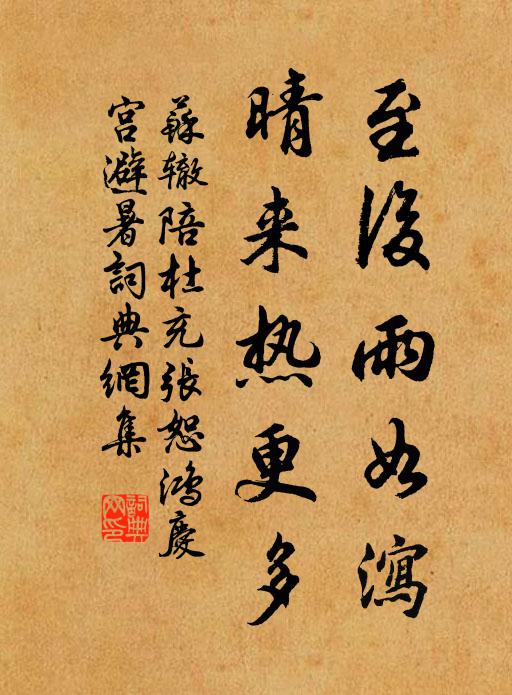 至後雨如瀉
晴来热更多
蘇辙陪杜充張恕鴻慶
宫避暑詞典網集
詞典網印